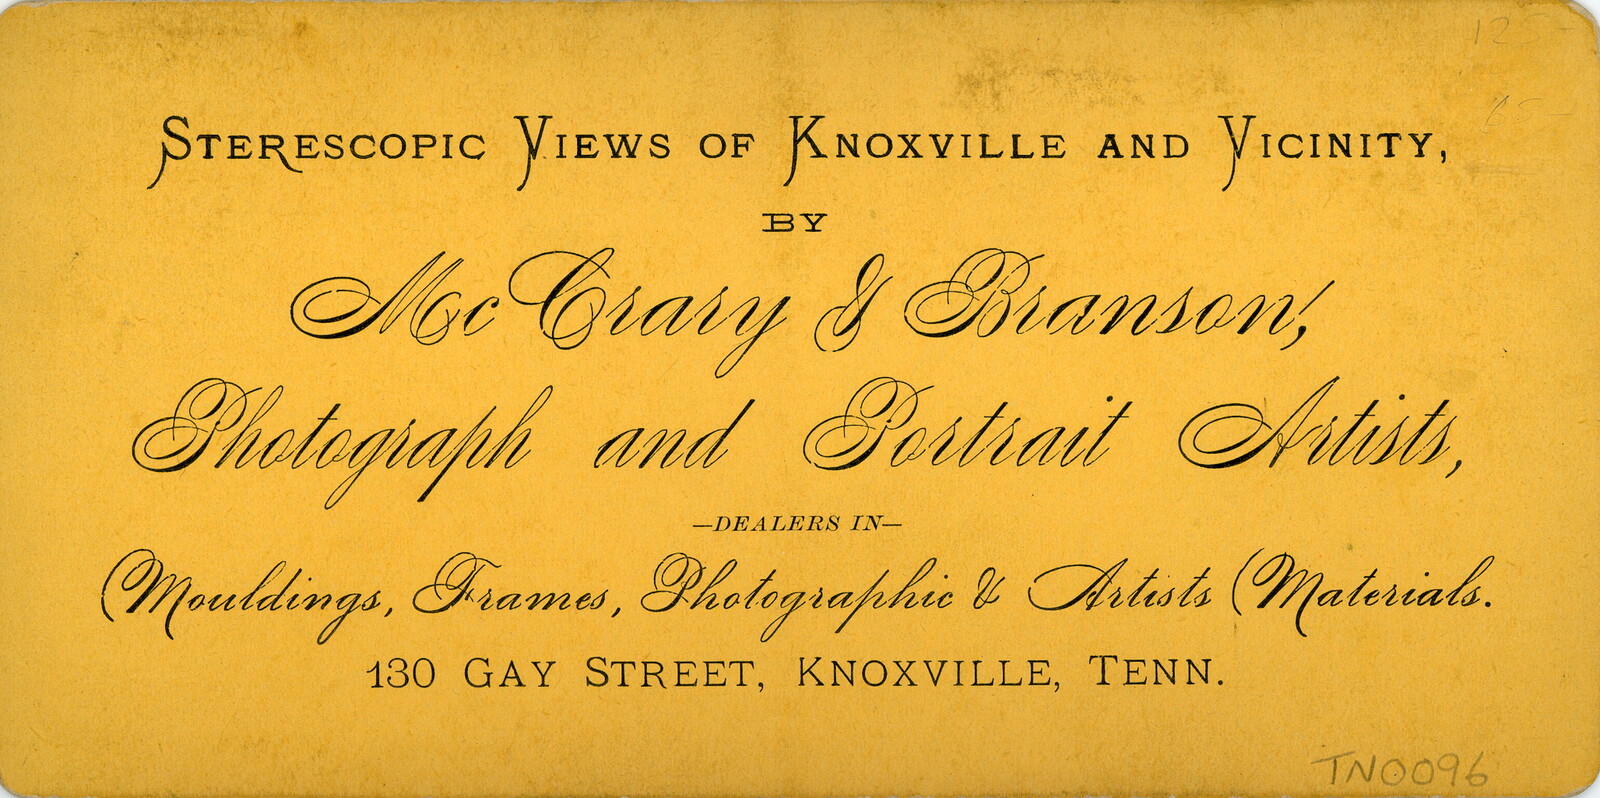 125-
STERESCOPIC VIEWS OF KNOXVILLE AND VICINITY,
BY
McCrary & Branson,
Photograph and Portrait Artists,
—DEALERS IN—
Mouldings, Frames, Photographic & Artists Materials.
130 GAY STREET, KNOXVILLE, TENN.
TN0096